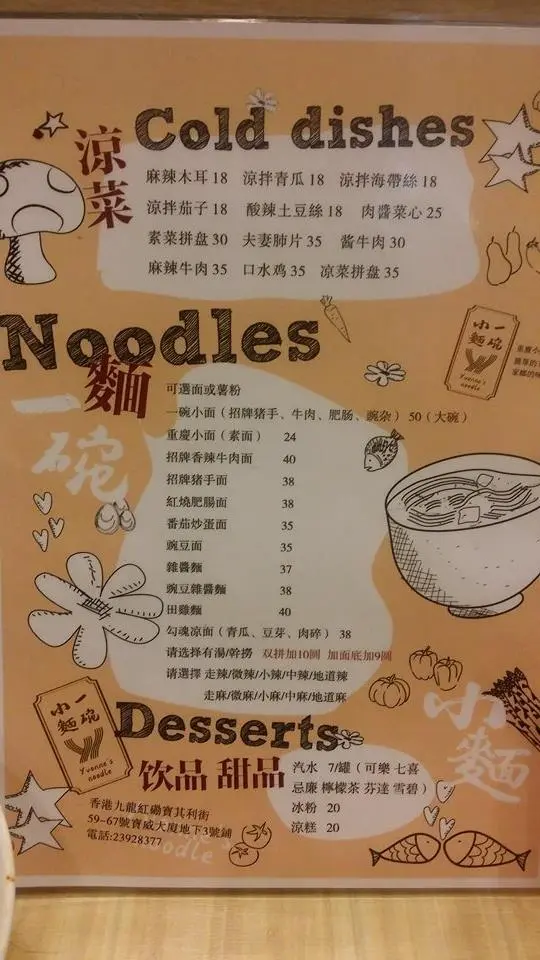 涼菜
Cold dishes
麻辣木耳 18 涼拌青瓜 18 涼拌海帶絲 18
涼拌茄子 18 酸辣土豆絲 18 肉醬菜心 25
素菜拼盘 30 夫妻肺片 35 酱牛肉 30
麻辣牛肉 35 口水鸡 35 凉菜拼盘 35
Noodles
麵
一碗
小一
麵碗
Yvonne's
noodle
重慶小
可選面或薯粉
一碗小面（招牌猪手、牛肉、肥肠、豌杂）50（大碗）
重慶小面（素面） 24
招牌香辣牛肉面 40
招牌猪手面 38
紅燒肥腸面 38
番茄炒蛋面 35
豌豆面 35
雜醬麵 37
豌豆雜醬麵 38
田雞麵 40
勾魂涼面（青瓜、豆芽、肉碎）38
请选择有湯/幹撈 双拼加10圓 加面底加9圓
请選擇 走辣/微辣/小辣/中辣/地道辣
走麻/微麻/小麻/中麻/地道麻
小麵
小一
麵碗
Yvonne's
noodle
Desserts
饮品 甜品
汽水 7/罐（可樂 七喜
忌廉 檸檬茶 芬達 雪碧）
冰粉 20
涼糕 20
香港九龍紅磡寶其利街
59-67號寶威大廈地下3號鋪
電話:23928377
noodle